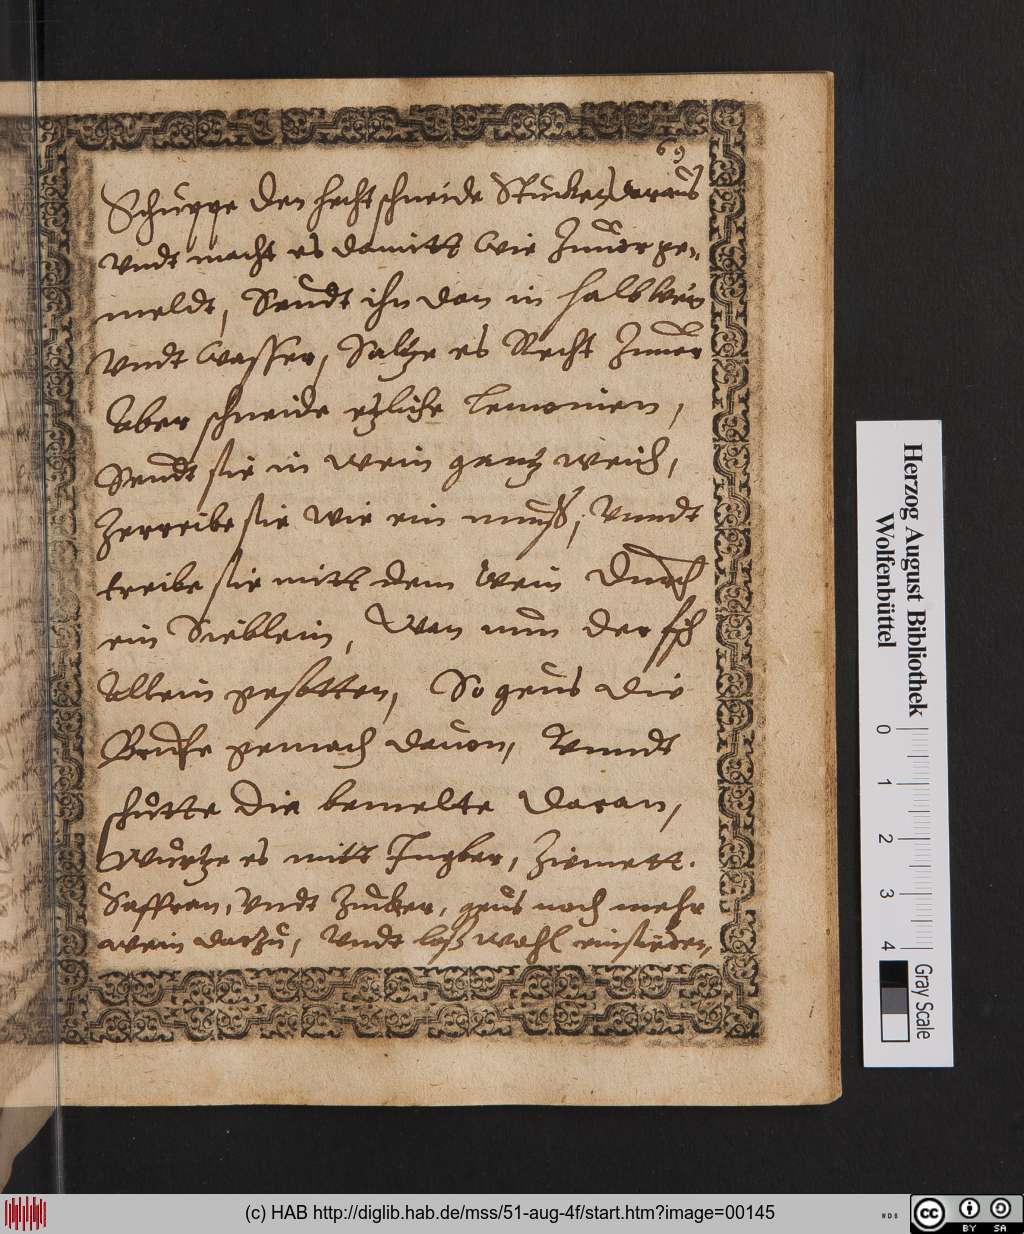 69
Schuppe den hecht schneide Stucker daraus
Vndt macht es damitt wie Zuuor ge„
meldt, Seudt ihn dan in halb wein
Vndt wasser, Saltze es Recht Zuuor
Aber schneide etzliche lemonien,
Seudt sie in wein gantz weich,
Zerreibe sie wie ein muß, Vnndt
treibe sie mitt dem wein durch
ein Sieblein, Wan nun der
allein gesotten, So geus die
Bruhe gemach dauon, Vnndt
schütte die bemelte daran,
Würtze es mitt Ingber, Zimett.
Saffran, Vndt Zucker, geus noch mehr
wein darzu, Vndt laß wohl einsieden,
Herzog August Bibliothek
Wolfenbüttel
0 1 2 3 4
Gray Scale
(c) HAB http://diglib.hab.de/mss/51-aug-4f/start.htm?image=00145
WDB
cc BY SA